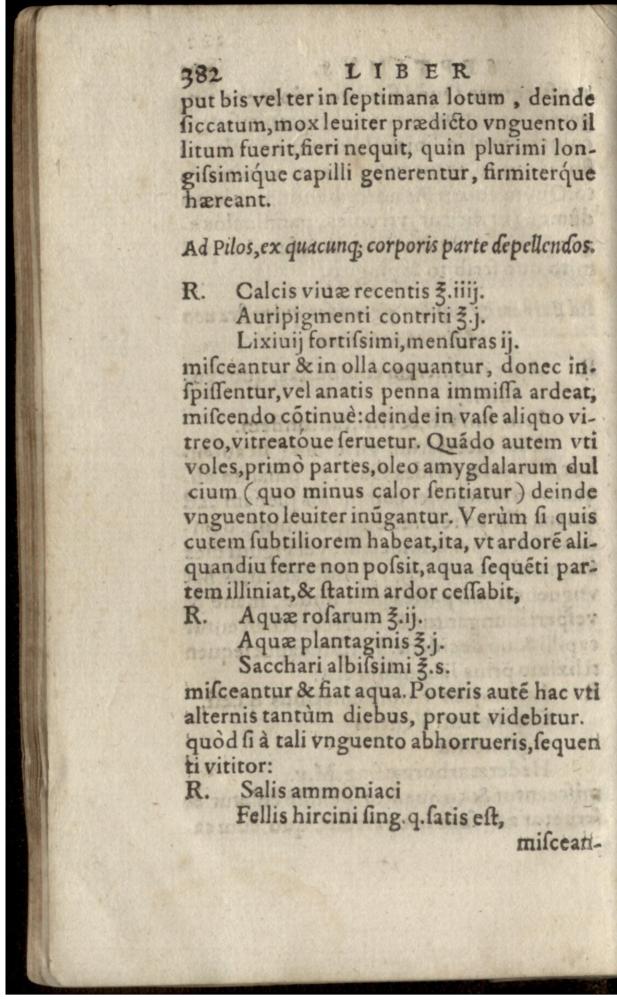 382 LIBER
put bis vel ter in ſeptimana lotum , deinde
ſiccatum,mox leuiter prædicto vnguento il
litum fuerit,fieri nequit, quin plurimi lon-
giſsimiq́ue capilli generentur, firmiterq́ue
hæreant.
Ad Pilos,ex quacunq; corporis parte depellendos.
R. Calcis viuæ recentis ℥.iiij.
Auripigmenti contriti ℥.j.
Lixiuij fortiſsimi,menſuras ij.
miſceantur & in olla coquantur, donec in-
ſpiſſentur,vel anatis penna immiſſa ardeat,
miſcendo cõtinuè:deinde in vaſe aliquo vi-
treo,vitreatóue ſeruetur. Quãdo autem vti
voles,primò partes,oleo amygdalarum dul
cium (quo minus calor ſentiatur) deinde
vnguento leuiter inũgantur. Verùm ſi quis
cutem ſubtiliorem habeat,ita, vt ardorẽ ali-
quandiu ferre non poſsit,aqua ſequẽti par-
tem illiniat,& ſtatim ardor ceſſabit,
R. Aquæ roſarum ℥.ij.
Aquæ plantaginis ℥.j.
Sacchari albiſsimi ℥.s.
miſceantur & fiat aqua.Poteris autẽ hac vti
alternis tantùm diebus, prout videbitur.
quòd ſi à tali vnguento abhorrueris,ſequen
ti vtitor:
R. Salis ammoniaci
Fellis hircini ſing.q.ſatis eſt,
miſcean-